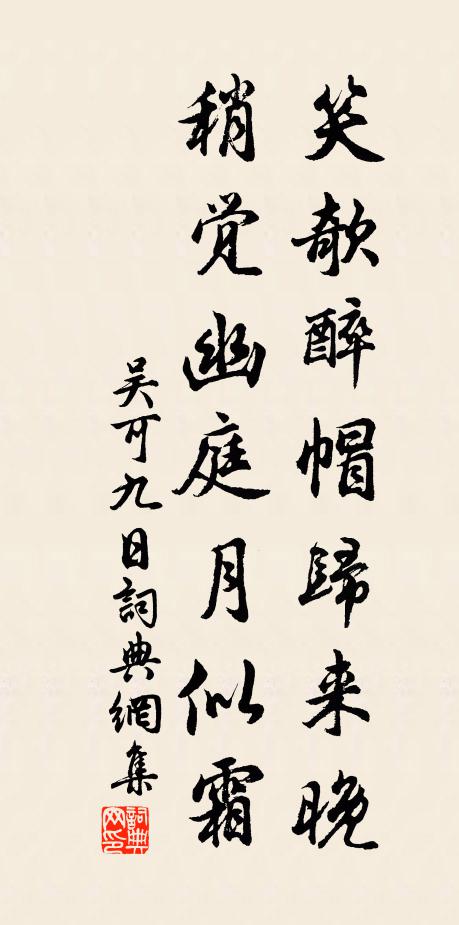 笑欹醉帽歸来晚
稍覺幽庭月似霜
吴可九日詞典網集
詞典网印